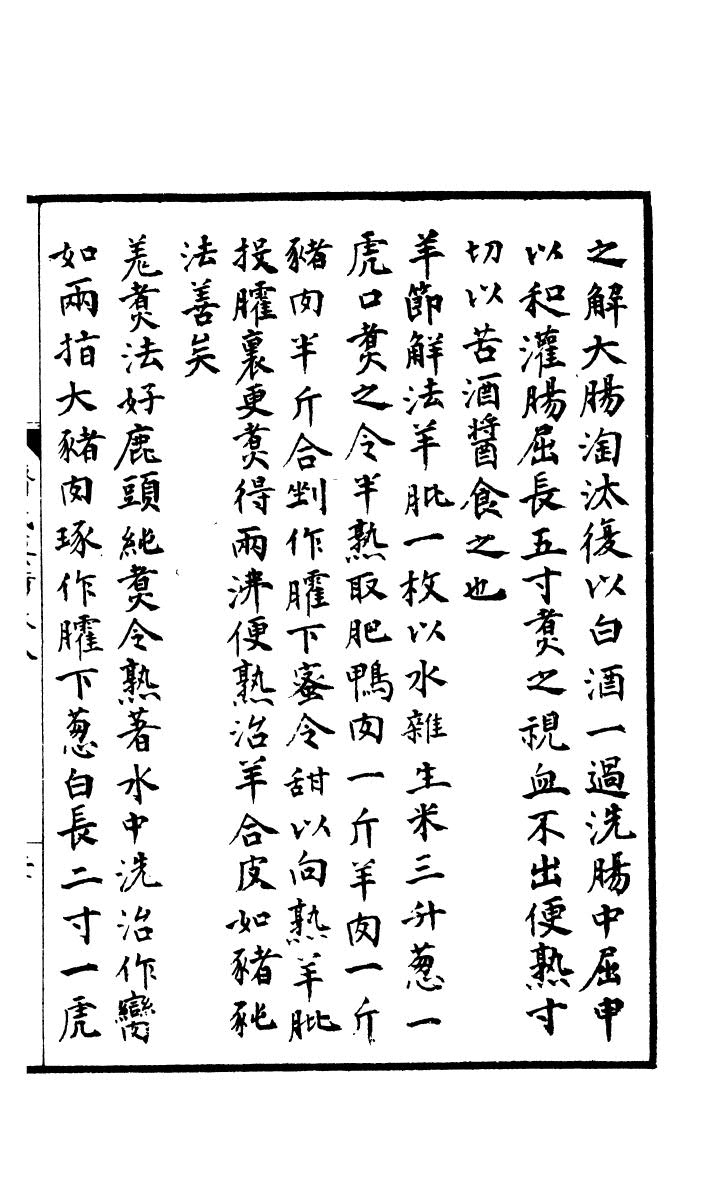 之解大腸淘汰復以白酒一過洗腸中屈申
以和灌腸屈長五寸煑之視血不出便熟寸
切以苦酒醬食之也
羊節解法羊肶一枚以水雜生米三升葱一
虎口煑之令半熟取肥鴨肉一斤羊肉一斤
豬肉半斤合剉作臛下蜜令甜以向熟羊肶
投臛裏更煑得兩沸便熟治羊合皮如豬㹠
法善矣
羌煑法好鹿頭純煑令熟著水中洗治作臠
如兩指大豬肉琢作臛下葱白長二寸一虎